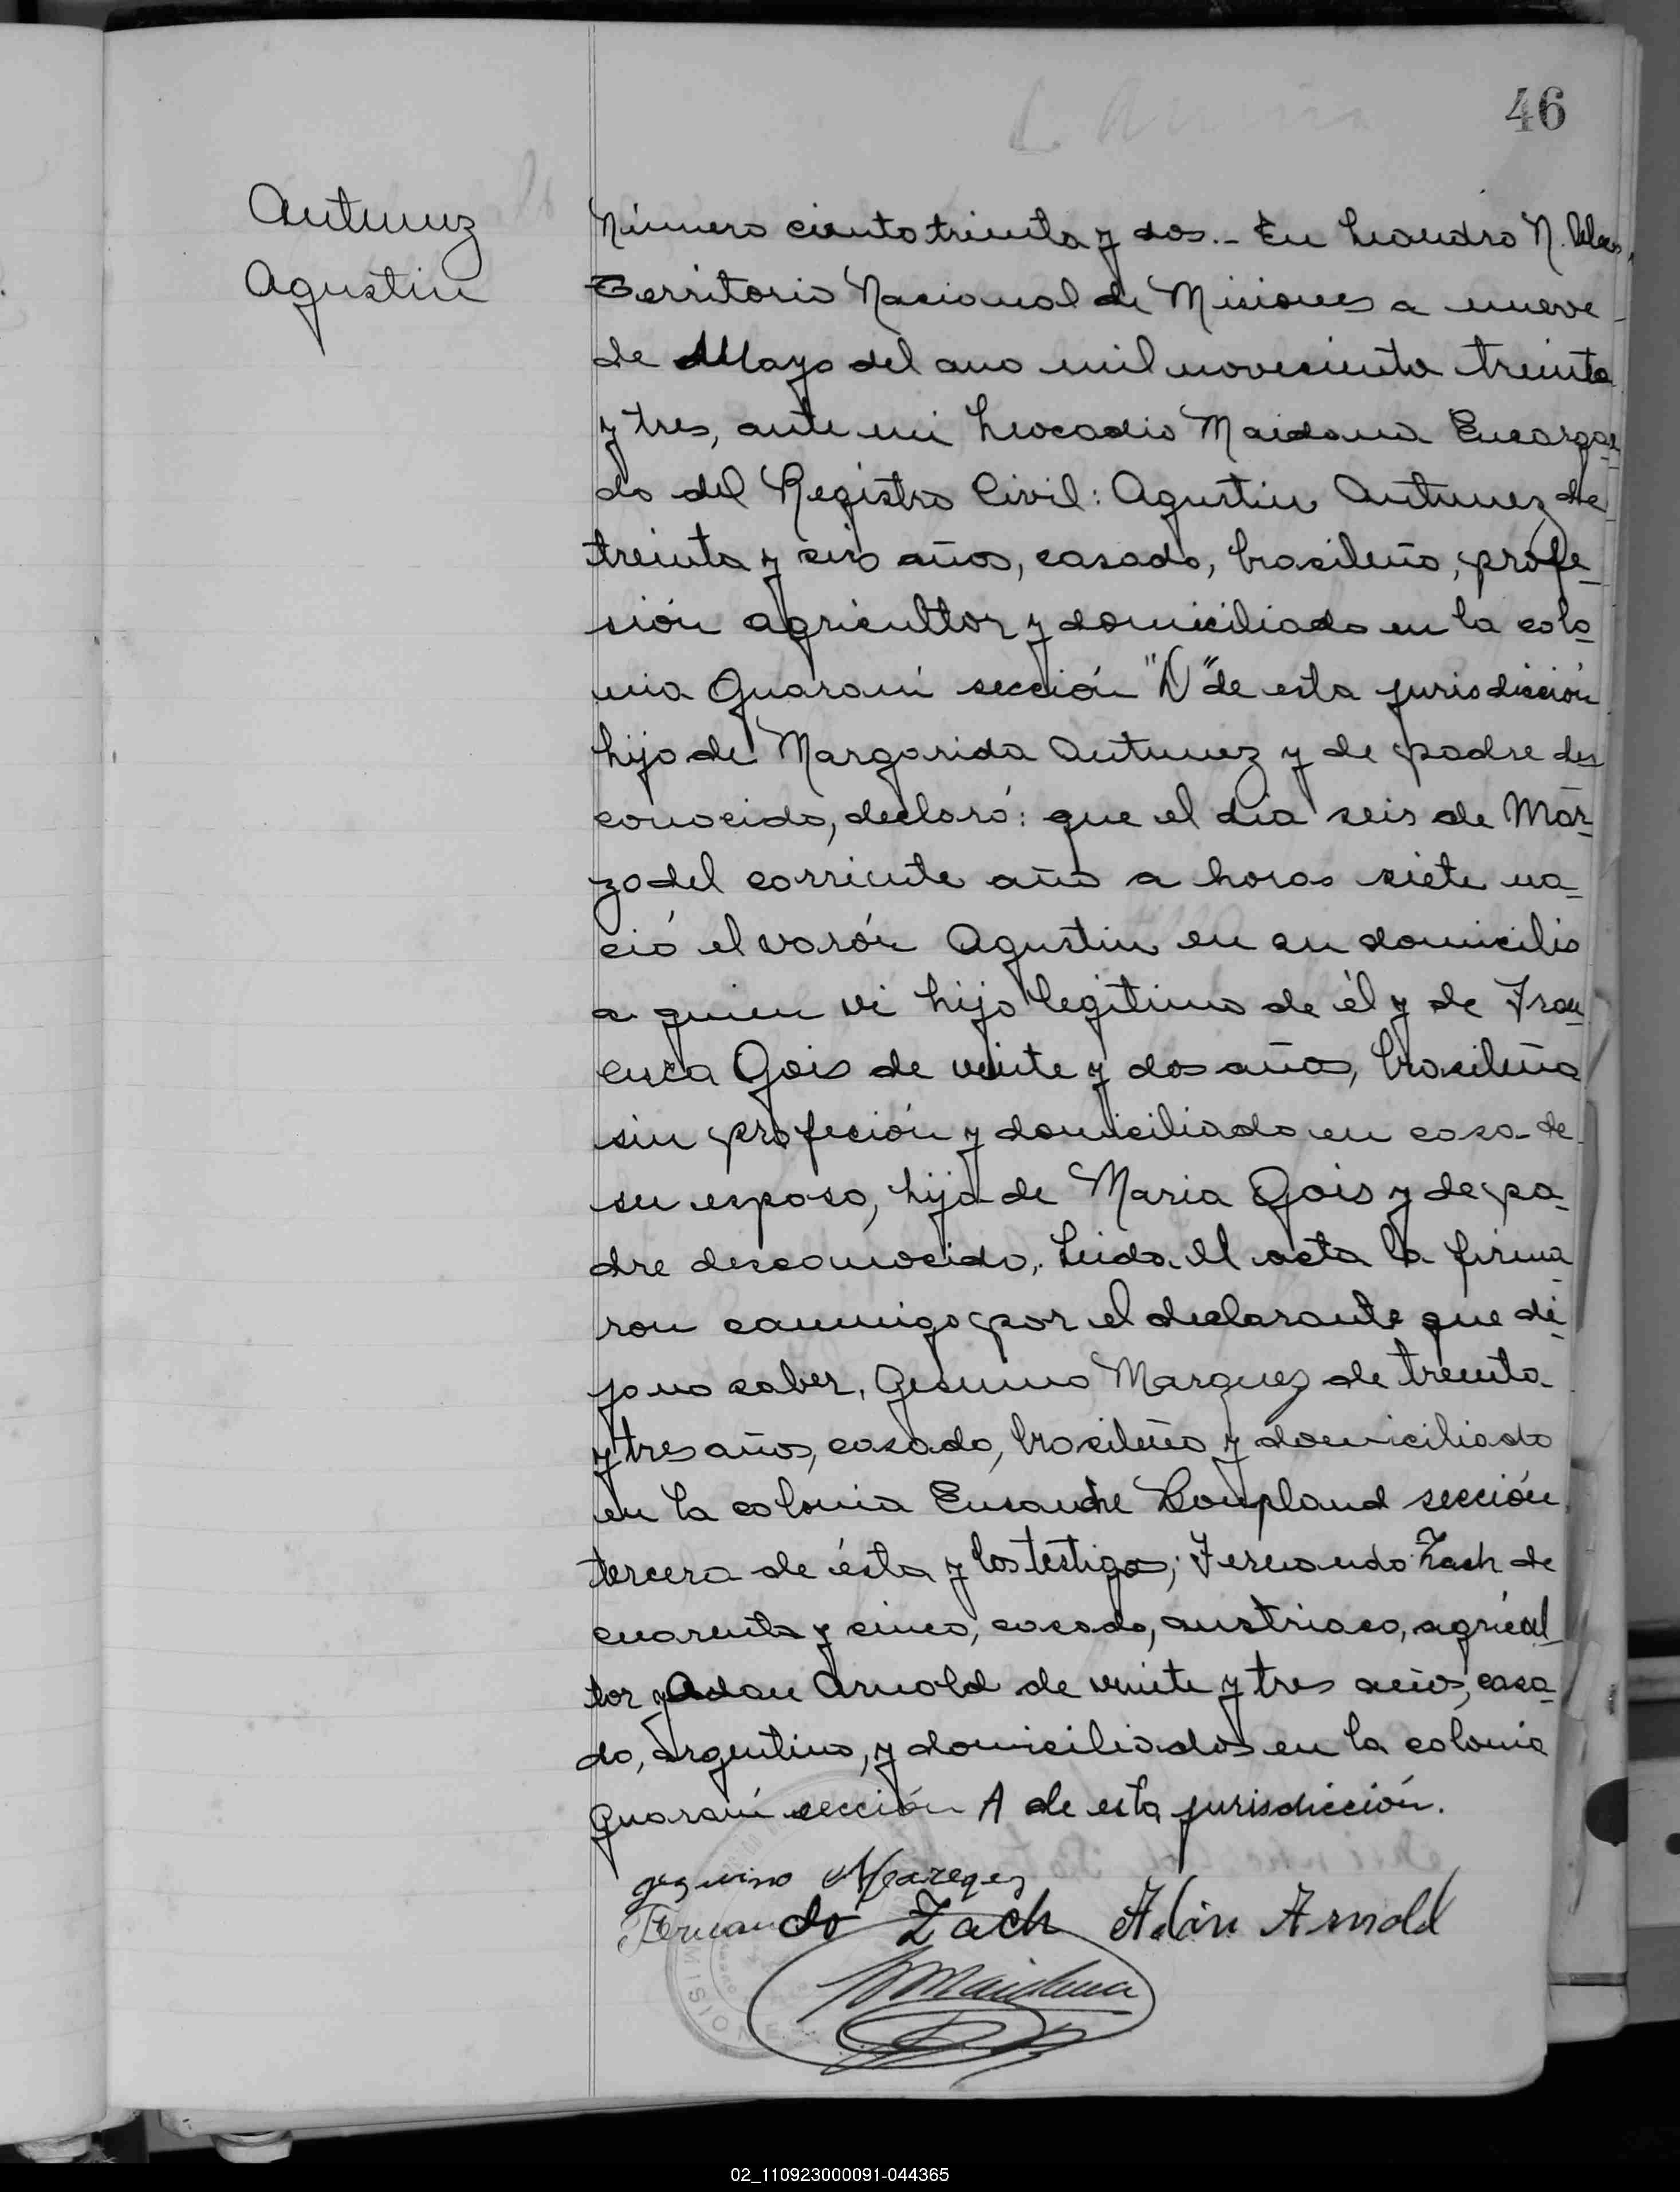 46
Antunez
Agustin
Número ciento treinta y dos.- En Leandro N. Alem,
Territorio Nacional de Misiones a nueve
de Mayo del ano mil noveciento treinta
y tres, ante mi Leocadio Maidana Encarga-
do del Registro Civil: Agustin Antunez de
treinta y seis años, casado, brasileño, profe-
sión agricultor y domiciliado en la colo-
nia Guaraní sección "N" de esta jurisdicción
hijo de Margarida Antunez y de padre des-
conocido, declaró: que el dia seis de Mar-
zo del corriente año a horas siete na-
ció el varón Agustin en su domicilio
a quien vi hijo legítimo de él y de Fran-
cisca Gois de veinte y dos años, brasileña
sin profeción y domiciliada en casa de
su esposo, hija de Maria Gois y de pa-
dre desconocido. Leida el acta la firma-
ron conmigo por el declarante que di-
jo no saber, Gesuino Marquez de treinta
y tres años, casado, brasileño y domiciliado
en la colonia Ensanche Bonpland sección
tercera de ésta y los testigos; Fernando Zach de
cuarenta y cinco, casado, austriaco, agricul-
tor y Adan Arnold de veinte y tres años, casa-
do, argentino, y domiciliados en la colonia
Guaraní sección A de esta jurisdicción.
Mareqez
Fernando Zach Adán Arnold
Maidana
MISIONES
02_110923000091-044365